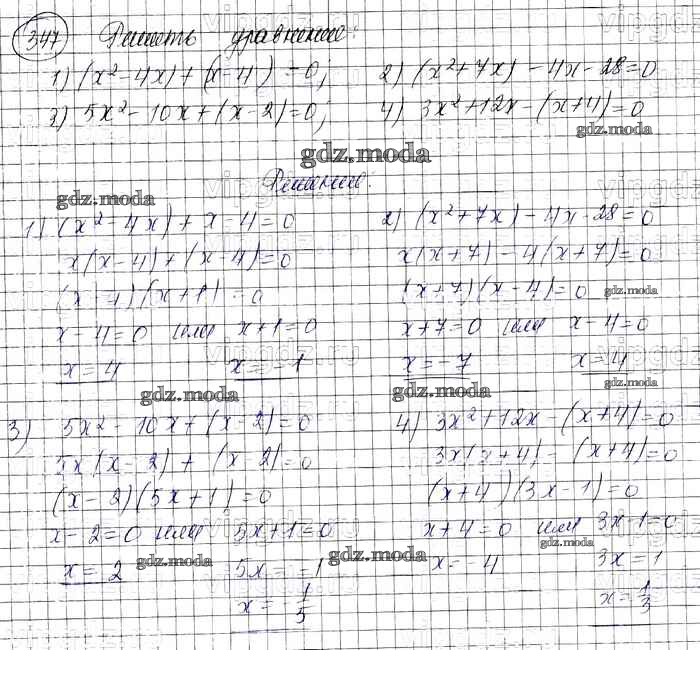 347 Решить уравнение:
1) (x²-4x)+(x-4)=0; 2) (x²+7x)-4x-28=0
3) 5x²-10x+(x-2)=0; 4) 3x²+12x-(x+4)=0
gdz.moda
gdz.moda
Решение.
gdz.moda
1) (x²-4x)+x-4=0
x(x-4)+(x-4)=0
(x-4)(x+1)=0
x-4=0 или x+1=0
x=4 x=-1
gdz.moda
2) (x²+7x)-4x-28=0
x(x+7)-4(x+7)=0
(x+7)(x-4)=0 gdz.moda
x+7=0 или x-4=0
x=-7 x=4
gdz.moda gdz.moda
3) 5x²-10x+(x-2)=0
5x(x-2)+(x-2)=0
(x-2)(5x+1)=0
x-2=0 или 5x+1=0
x=2 gdz.moda 5x=-1
x=-1/5
gdz.moda
4) 3x²+12x-(x+4)=0
3x(x+4)-(x+4)=0
(x+4)(3x-1)=0
x+4=0 или 3x-1=0
gdz.moda
x=-4 3x=1
x=1/3
vipgdz.ru